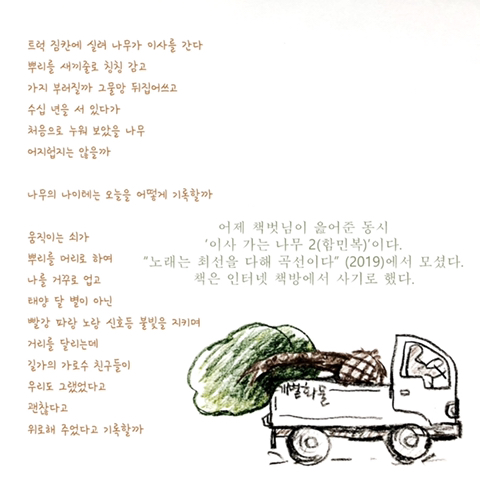 트럭 짐칸에 실려 나무가 이사를 간다
뿌리를 새끼줄로 칭칭 감고
가지 부러질까 그물망 뒤집어쓰고
수십 년을 서 있다가
처음으로 누워 보았을 나무
어지럽지는 않을까
나무의 나이테는 오늘을 어떻게 기록할까
움직이는 쇠가
뿌리를 머리로 하여
나를 거꾸로 업고
태양 달 별이 아닌
빨강 파랑 노랑 신호등 불빛을 지키며
거리를 달리는데
길가의 가로수 친구들이
우리도 그랬었다고
괜찮다고
위로해 주었다고 기록할까
어제 책벗님이 읊어준 동시
‘이사 가는 나무 2(함민복)’이다.
“노래는 최선을 다해 곡선이다” (2019)에서 모셨다.
책은 인터넷 책방에서 사기로 했다.
개별화물